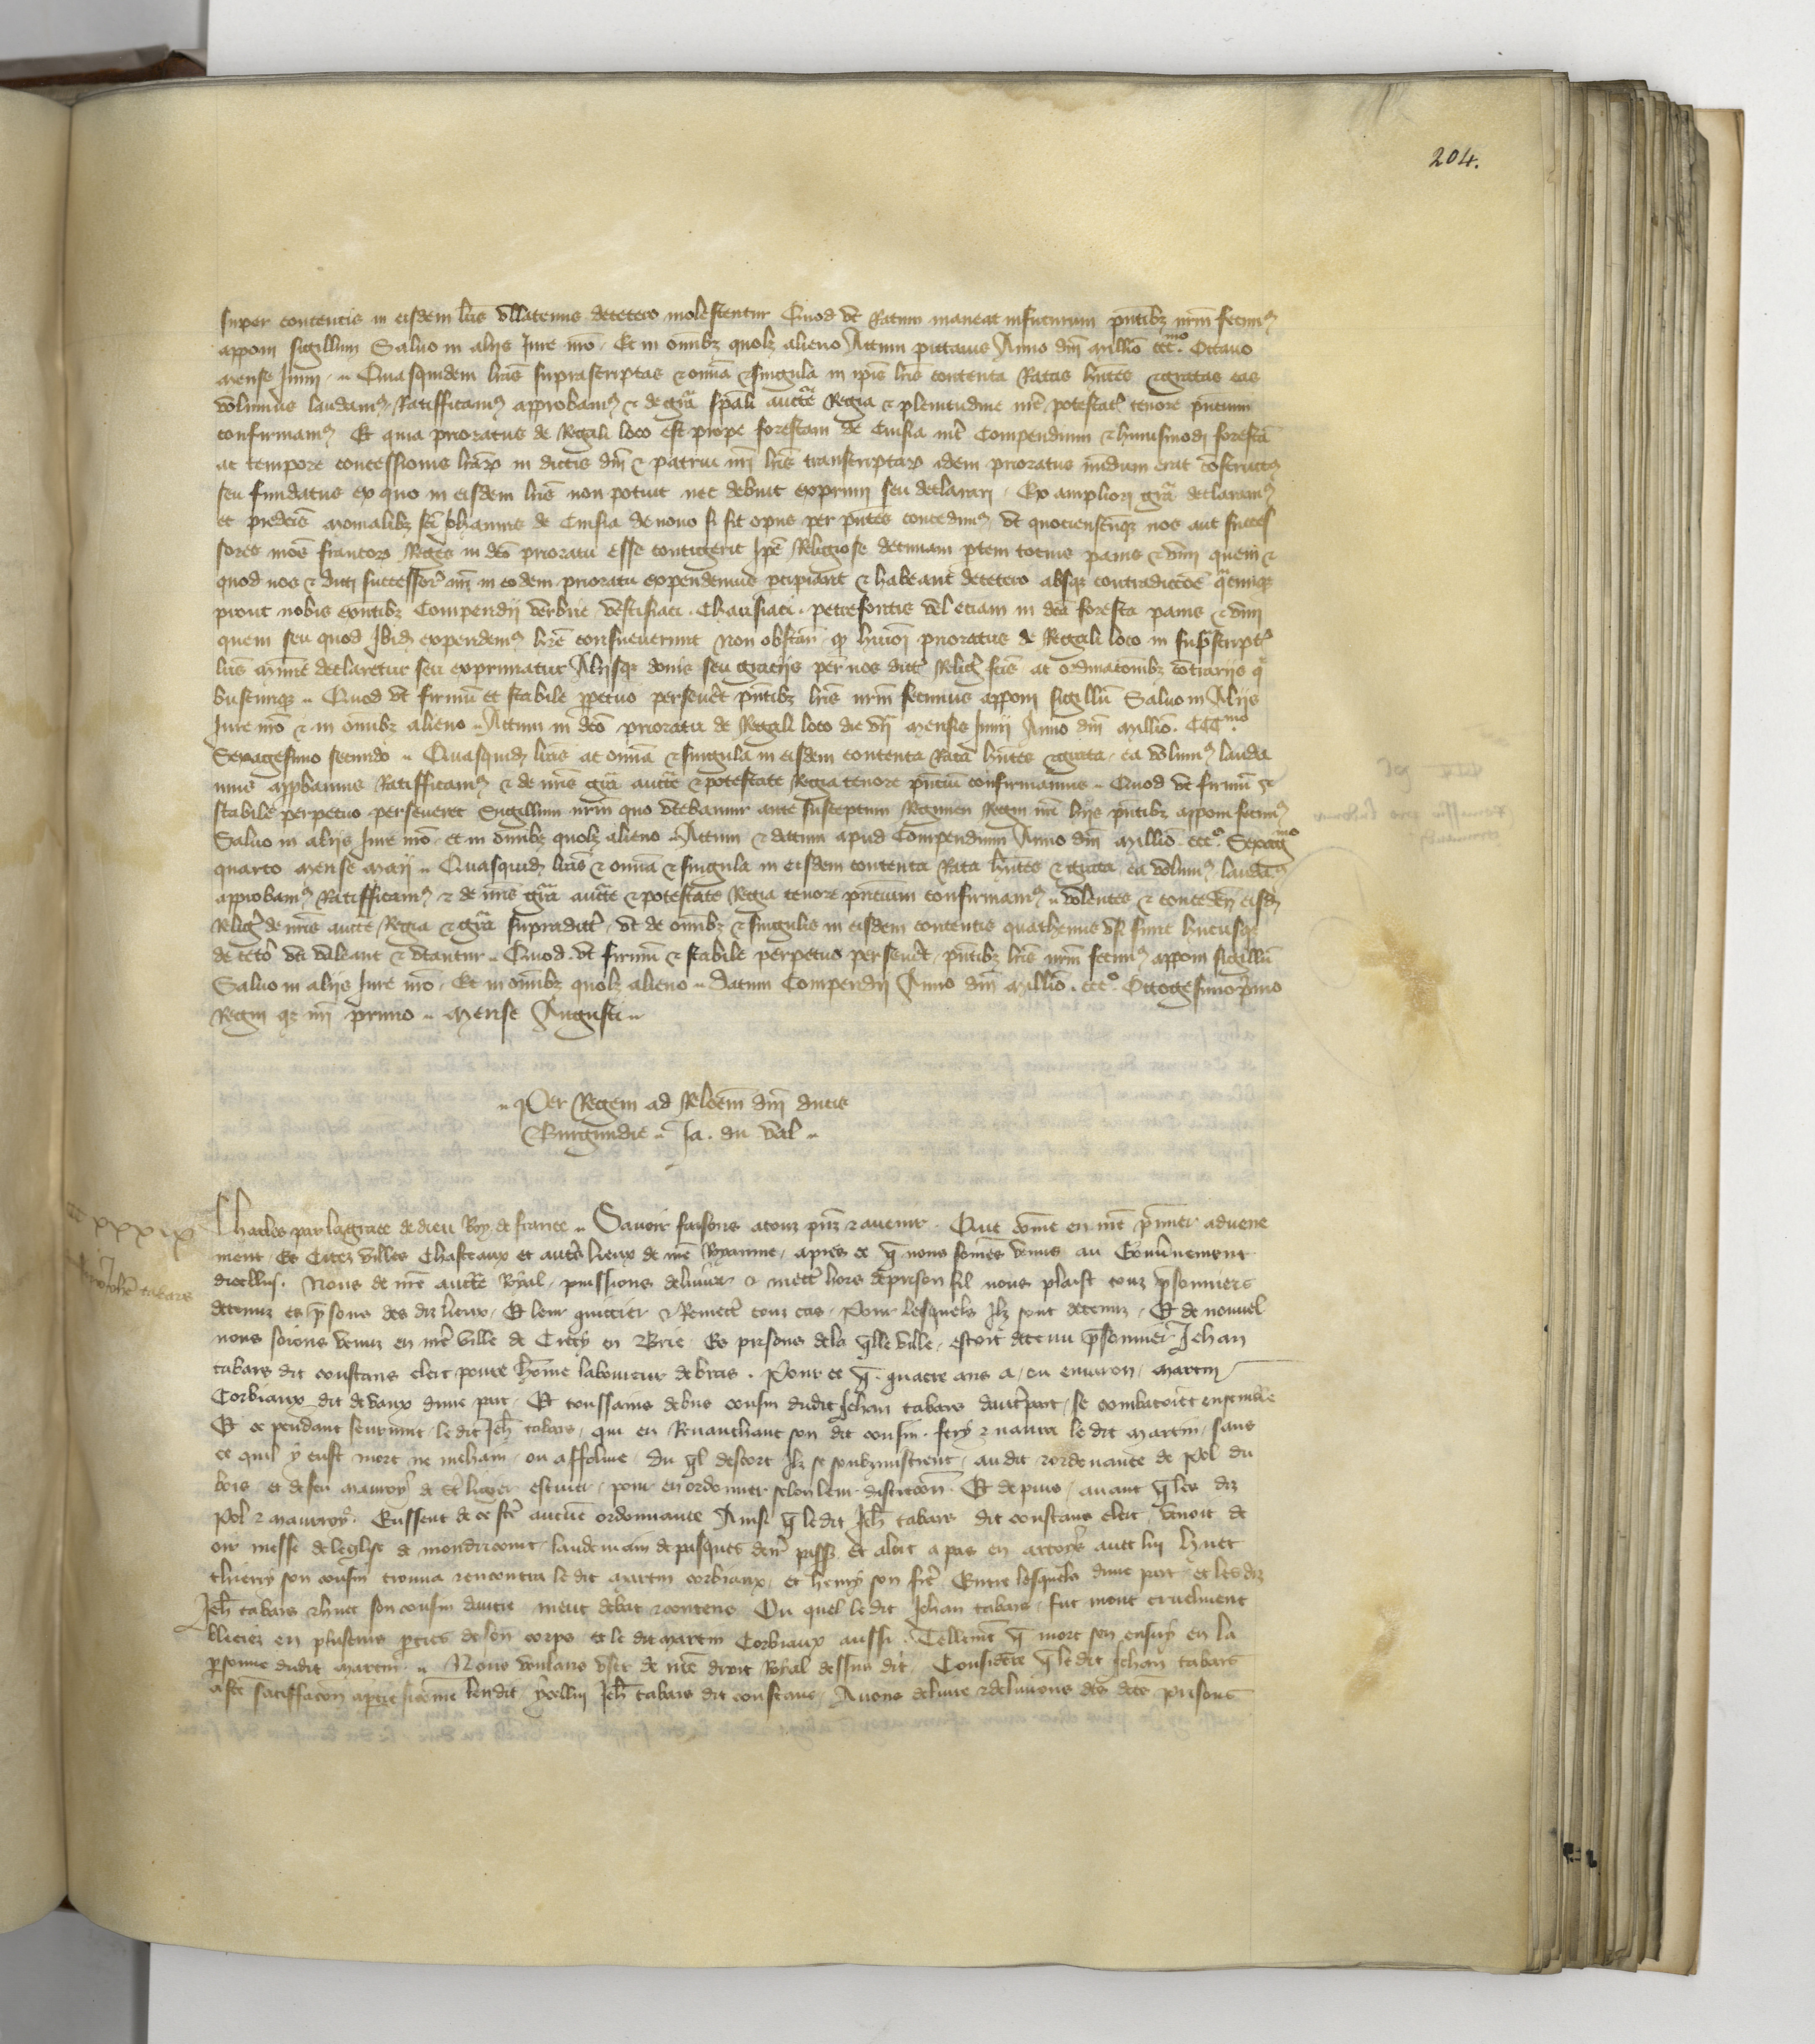 204.
super contentis in eisdem lris ullatenus decetero molestentur Quod ut Ratum maneat infuturum pntibz nrm fecimus
apponi sigillum Saluo in aliis Iure nro. Et in omibz quolz alieno Actum pictauis Anno dni millio ccc.mo Octauo
mense Junii. Quasquidem lris suprascriptas et omia et singula in ipis lris contenta Ratas hntes et gratas eas
volumus laudam9 Ratifficam9 approbam9 et de gra spali aucte Regia et plenitudine nre potestatis tenore pncium
confirmam9 Et quia prioratus de Regali loco est prope forestam de Cuisia inter Compendium et huiusmodi foresta
ac tempore concessionis lrar in dictis dni et patrui nri lris transcriptar idem prioratus nundum erat constructus
seu fundatus ex quo in eisdem lris non potuit nec debuit exprimi seu declarari. Ex ampliori gra declaram9
et predcis monialibz sci Johannis de Cuisia de nouo si sit opus per pntes concedim9 ut quocienscumqz nos aut succes
sores nros francor Reges in dco prioratu esse contigerit Ipe Religiose decimam ptem tocius panis et vini quem et
quod nos et dicti successores nri in eodem prioratu expendemus percipiant et habeant decetero absqz contradiccoe quacumqz
prout nobis exntibz Compendii verbrie vestisiaci. Chausiaci. petrefontis vel etiam in dca foresta panis et vini
quem seu quod Ibid expendem9 hre consueuerunt Non obstan qz huioi prioratus de Regali loco in suprascriptis
lris minime declaretur seu exprimatur Aliisqz donis seu graciis per nos dict Relig fcis ac ordinacionibz contrariis qui
buscumqz. Quod ut firmu et stabile perpetuo perseueret pntibz lris nrm fecimus apponi sigillu Saluo in Aliis
Iure nro et in omibz alieno. Actum in dco prioratu de Regali loco die mensis Junii Anno dni millio. CCCmo.
Sexagesimo secundo. Quasquid lris ac omia et singula in eisdem contenta Rata hntes et grata, ea volum9 lauda
mus approbamus Ratifficam9 et de nris gra aucte et potestate Regia tenore pnciu confirmamus. Quod ut firmu et
stabile perpetuo perseueret Sugillum nrm quo utebamur ante susceptum Regimen Regni nri hiis pntibz apponi fecim9
Saluo in aliis Iure nro et in omibz quolz alieno. Actum et datum apud Compendium Anno dni millio. ccco. Sexagmo
quarto mense maii. Quasquid lris et omia et singula in eisdem contenta Rata hntes et grata ea volum9 laudam9
approbam9 Ratifficam9 et de nris gra aucte et potestate Regia tenore pncium confirmam9. volentes et conceden eisd
Relig de nris aucte Regia et gra supradict ut de omibz et singulis in eisdem contentis quathenus usi sunt hucusqz
de ceto uti valeant et utantur. Quod ut firmu et stabile perpetuo perseuet pntibz lris nrm fecim9 apponi sigillu
Saluo in aliis Iure nro. Et in omibz quolz alieno. Datum Compendii Anno dni millio. ccco. Octogesimoprimo
Regni qz nri primo. mense Augusti.
Per Regem ad Relcoem dni ducis
Burgundie. Ja. du val.
xxxix
Charles par la grace de dieu Roy de france. Sauoir faisons a touz pns et auenir. Que come en nre primier aduene
ment es Citez villes Chasteaux et autres lieux de nre Royaume, apres ce que nous somes venus au Gouuernement
dicellui. Nous de nre aucte Royal puissions deliurer et mettre hors de prison sil nous plaist touz prisonniers
detenuz es prisons des diz lieux. Et leur quittier et Remettre touz cas. Pour lesquels Ilz sont detenuz. Et de nouuel
nous soions venuz en nre ville de Crecy en Brie. Es prisons de la quelle ville, estoit detenu prisonnier Jehan
tabars dit constans clerc poure home laboureur de bras. Pour ce que quatre ans a, ou enuiron, martin
Corbiaux dit de vaux dune part. Et toussains cousin dudit Jehan tabars dautre part, se combatoient ensemble
Et ce pendant seuruint le dit Jeh tabars, qui en Reuanchant son dit cousin fery et naura le dit martin, sans
ce quil y eust mort ne mehain, ou affolure, du quel descort Ilz se soubzmistrent, au dit et ordenance de Pol du
bois et de feu de estuier, pour en ordonner selon leur discrecion. Et depuis, auant que les diz
Pol et Eussent de ce fet aucune ordonnance Ainsi que ledit Jeh tabars dit constans clerc, venoit de
oir messe de leglise de landemain de pasques derr passe Et aloit a pas en auec lui huet
thierry son cousin trouua et encontra le dit martin corbiaux, et henry son frere Entre lesquels dune part et les diz
Jeh tabars et huet son cousin dautre meut debat et contens Ou quel le dit Jehan tabars fut mout cruelment
bleciez en plusieurs parties de son corps et le dit martin Corbiaux aussi. Tellement que mort sen ensuy en la
personne dudit martin. Nous voulans user de nre droit Royal dessus dit. Considere que le dit Jehan tabars
a fte satiffacion a partie sicome len dit ycellui Jeh tabars dit constans, Auons deliure et deliurons des dctes prisons